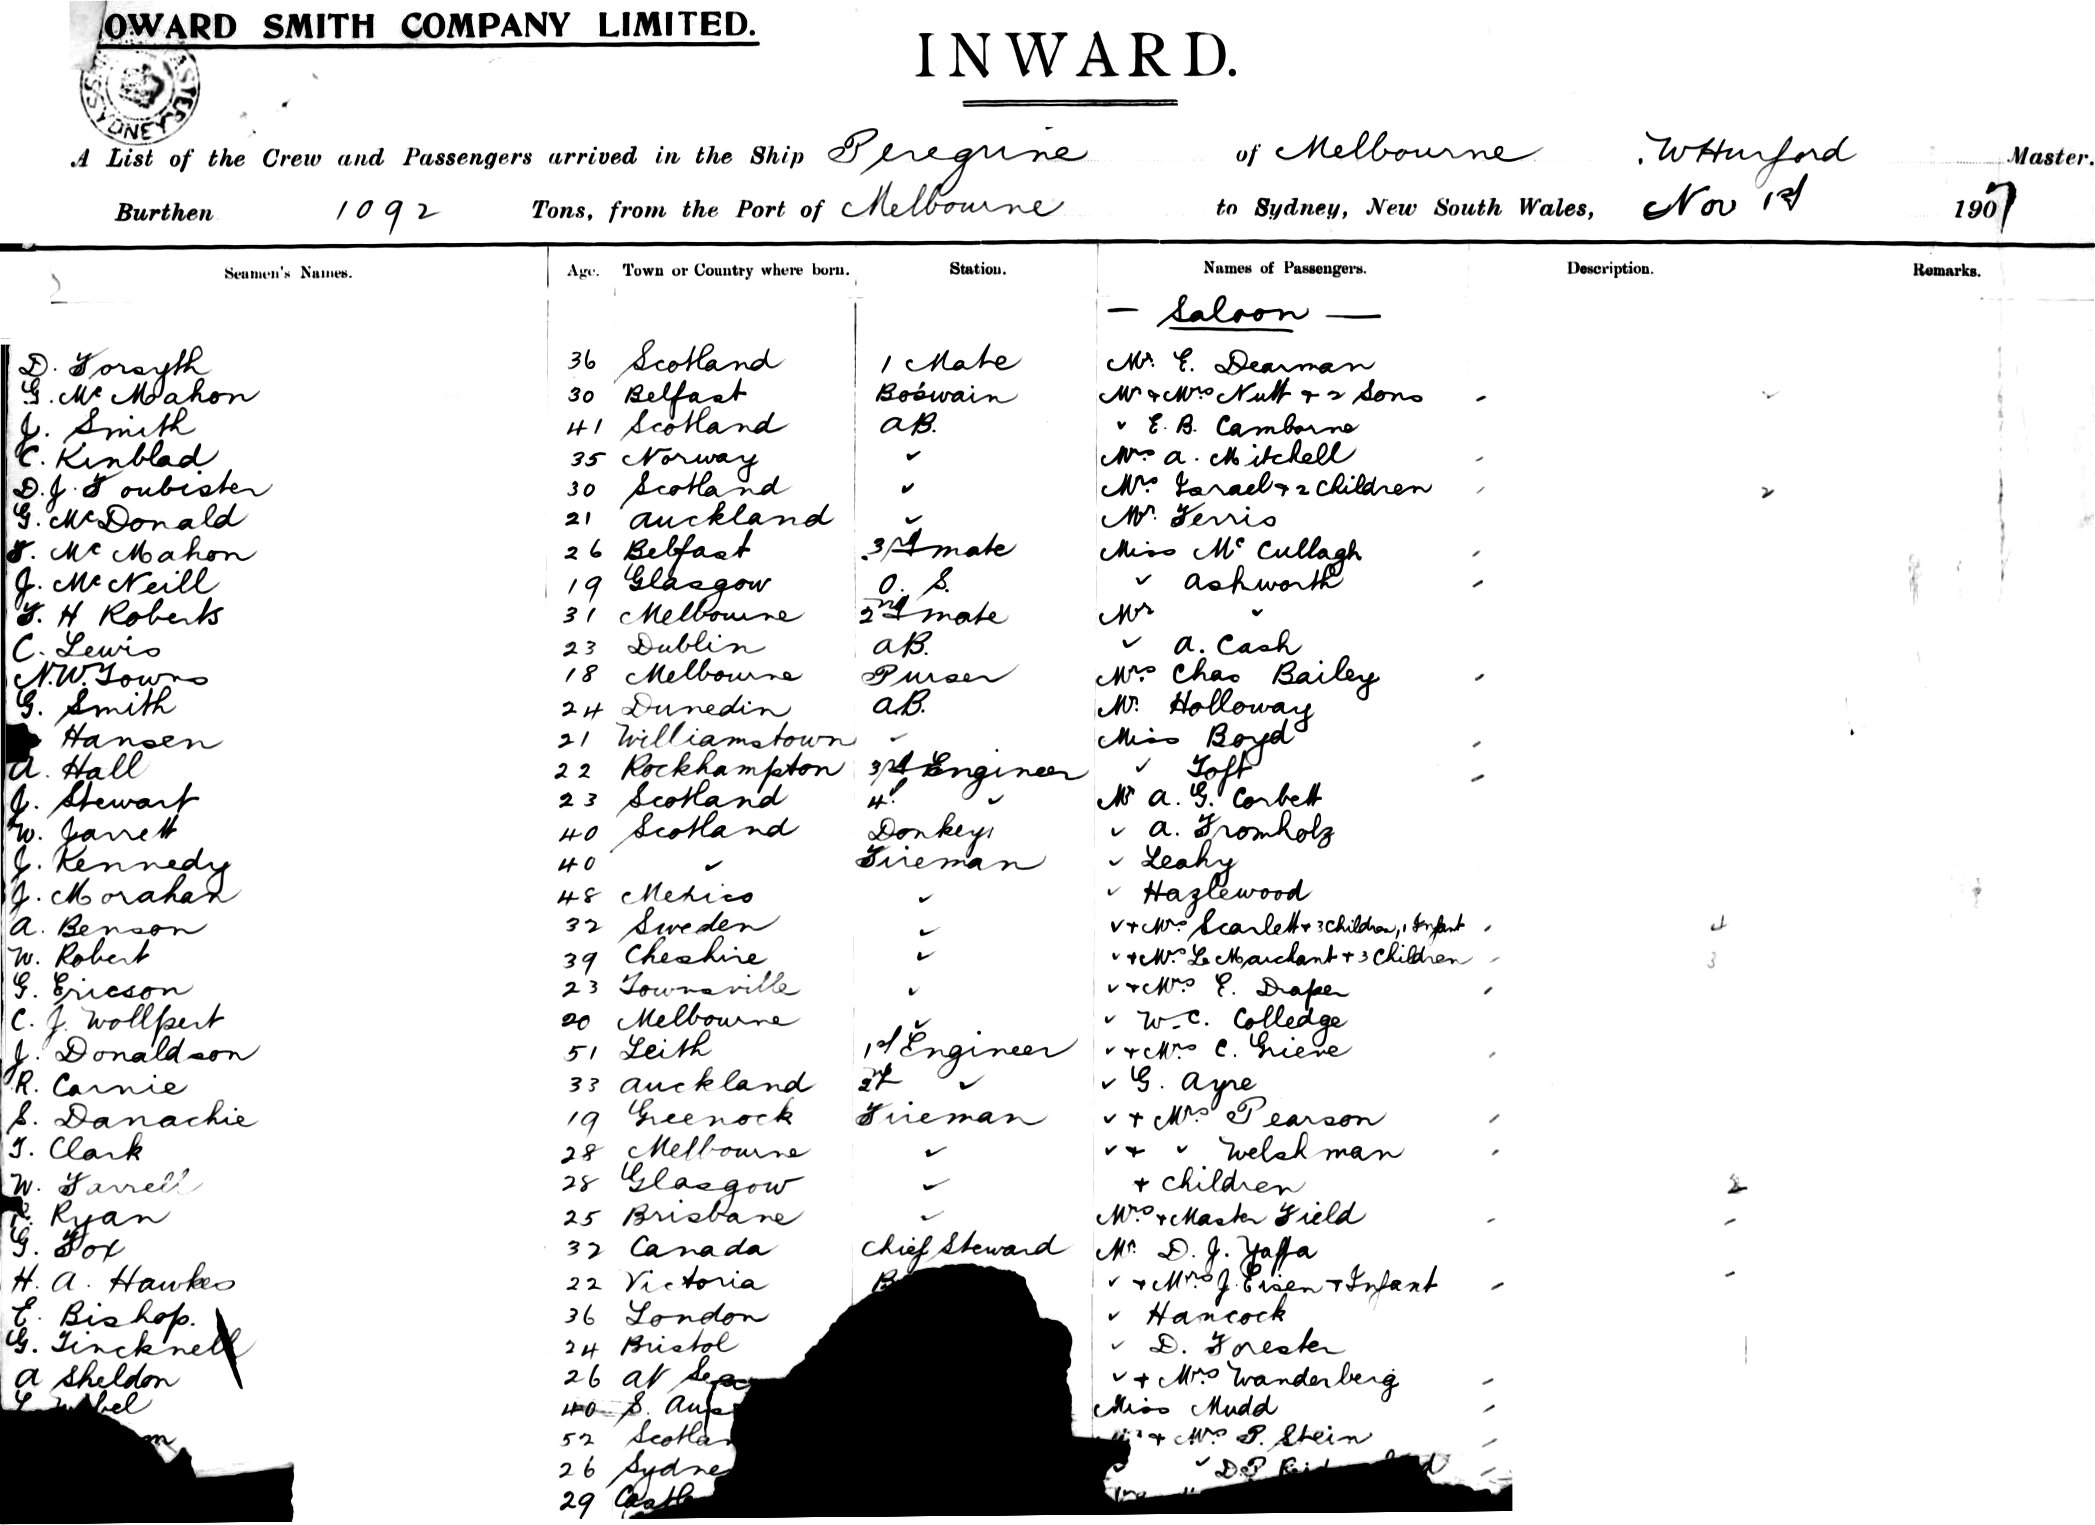 OWARD SMITH COMPANY LIMITED.
INWARD.
SYDNEY
A List of the Crew and Passengers arrived in the Ship Peregrine of Melbourne W Hurford Master.
Burthen 1092 Tons, from the Port of Melbourne to Sydney, New South Wales, Nov 1st 1907
Seamen's Names. Age. Town or Country where born. Station. Names of Passengers. Description. Remarks.
— Saloon —
D. Forsyth 36 Scotland 1 Mate Mr. E. Dearman
G. Mc Mahon 30 Belfast Bo'swain Mr + Mrs Nutt + 2 Sons
J. Smith 41 Scotland AB. " E. B. Camborne
C. Kinblad 35 Norway " Mrs A. Mitchell
D. J. Foubister 30 Scotland " Mrs Israel + 2 Children 2
G. McDonald 21 Auckland " Mr. Ferris
F. Mc Mahon 26 Belfast 3rd mate Miss Mc Cullagh
J. McNeill 19 Glasgow O. S. " Ashworth
F. H Roberts 31 Melbourne 2nd mate Mr "
C. Lewis 23 Dublin AB. " A. Cash
N. W. Towns 18 Melbourne Purser Mrs Chas Bailey
G. Smith 24 Dunedin AB. Mr. Holloway
Hansen 21 Williamstown " Miss Boyd
A. Hall 22 Rockhampton 3rd Engineer " Toft
J. Stewart 23 Scotland 4th " Mr A. G. Corbett
W. Jarrett 40 Scotland Donkey " A. Fromholz
J. Kennedy 40 " Fireman " Leahy
J. Morahan 48 Mexico " " Hazlewood
A. Benson 32 Sweden " " + Mrs Scarlett + 3 Children, 1 Infant 4
W. Robert 39 Cheshire " " + Mrs Le Marchant + 3 Children 3
G. Ericson 23 Townsville " " + Mrs E. Draper
C. J. Wollpert 20 Melbourne " " W. C. Colledge
J. Donaldson 51 Leith 1st Engineer " + Mrs C. Grieve
R. Carnie 33 Auckland 2nd " " G. Ayre
S. Danachie 19 Greenock Fireman " + Mrs Pearson
T. Clark 28 Melbourne " " + " Welshman
W. Farrell 28 Glasgow " + Children 2
Ryan 25 Brisbane " Mrs + Master Field
G. Fox 32 Canada Chief Steward Mr. D. J. Yaffa
H. A. Hawkes 22 Victoria " + Mrs J. Eisen + Infant
E. Bishop. 36 London " Hancock
G. Tincknell 24 Bristol " D. Forester
A Sheldon 26 At Sea " + Mrs Wanderberg
40 S. Aus Miss Mudd
52 Scotlan + Mrs P. Stein
26 Sydne " D. P.
29 Castl